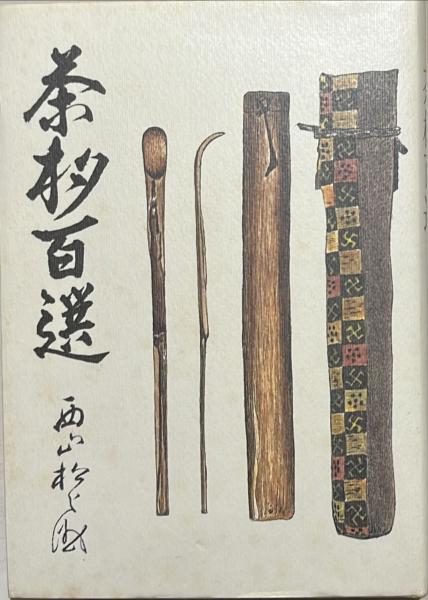 茶杓百選
西山松之助